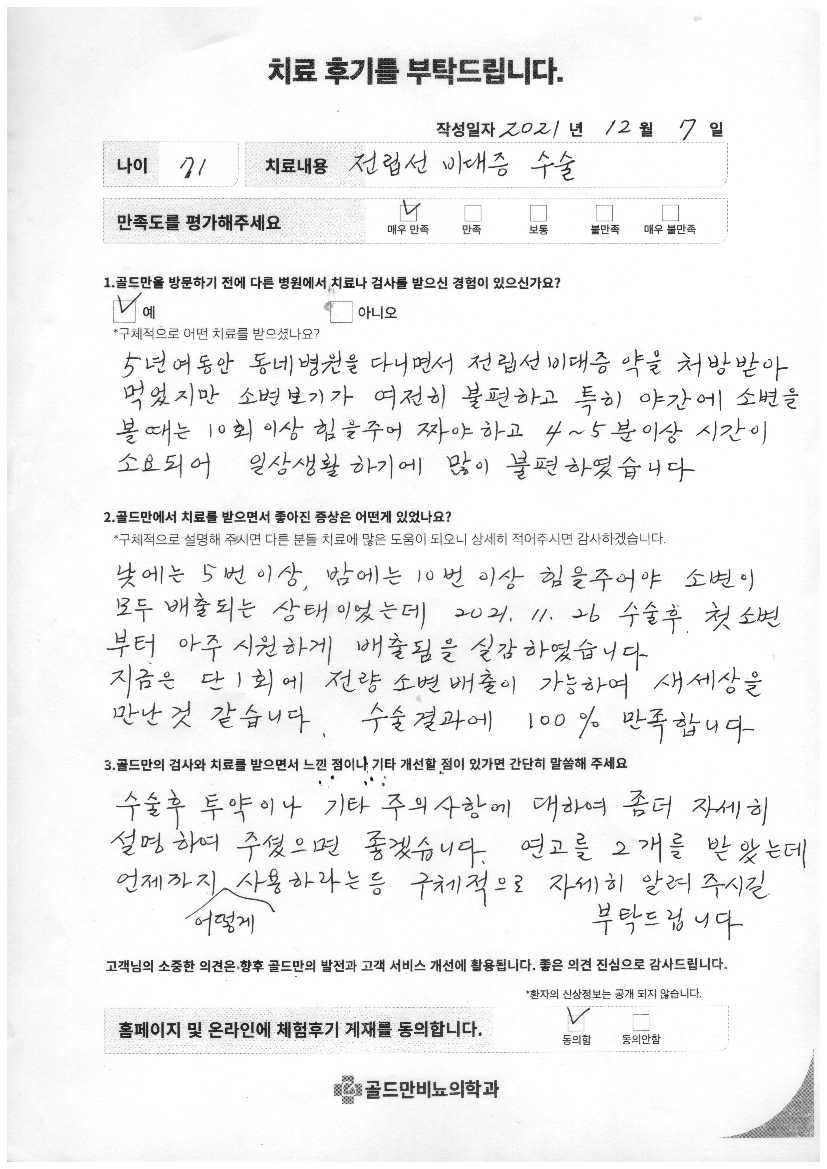 치료 후기를 부탁드립니다.
작성일자 2021 년 12 월 7 일
나이 71 치료내용 전립선 비대증 수술
만족도를 평가해주세요
매우 만족 만족 보통 불만족 매우 불만족
1.골드만을 방문하기 전에 다른 병원에서 치료나 검사를 받으신 경험이 있으신가요?
예 아니오
*구체적으로 어떤 치료를 받으셨나요?
5년여동안 동네병원을 다니면서 전립선비대증 약을 처방받아
먹었지만 소변보기가 여전히 불편하고 특히 야간에 소변을
볼때는 10회 이상 힘을주어 짜야하고 4~5분이상 시간이
소요되어 일상생활 하기에 많이 불편하였습니다
2.골드만에서 치료를 받으면서 좋아진 증상은 어떤게 있었나요?
*구체적으로 설명해 주시면 다른 분들 치료에 많은 도움이 되오니 상세히 적어주시면 감사하겠습니다.
낮에는 5번이상, 밤에는 10번 이상 힘을주어야 소변이
모두 배출되는 상태이었는데 2021. 11. 26 수술후 첫소변
부터 아주 시원하게 배출됨을 실감하였습니다
지금은 단 1회에 전량 소변배출이 가능하여 새세상을
만난것 같습니다. 수술결과에 100% 만족합니다
3.골드만의 검사와 치료를 받으면서 느낀 점이나 기타 개선할 점이 있가면 간단히 말씀해 주세요
수술후 투약이나 기타 주의사항에 대하여 좀더 자세히
설명하여 주셨으면 좋겠습니다. 연고를 2개를 받았는데
언제까지 사용하라는등 구체적으로 자세히 알려주시길
어떻게 부탁드립니다
고객님의 소중한 의견은 향후 골드만의 발전과 고객 서비스 개선에 활용됩니다. 좋은 의견 진심으로 감사드립니다.
*환자의 신상정보는 공개 되지 않습니다.
홈페이지 및 온라인에 체험후기 게재를 동의합니다.
동의함 동의안함
골드만비뇨의학과